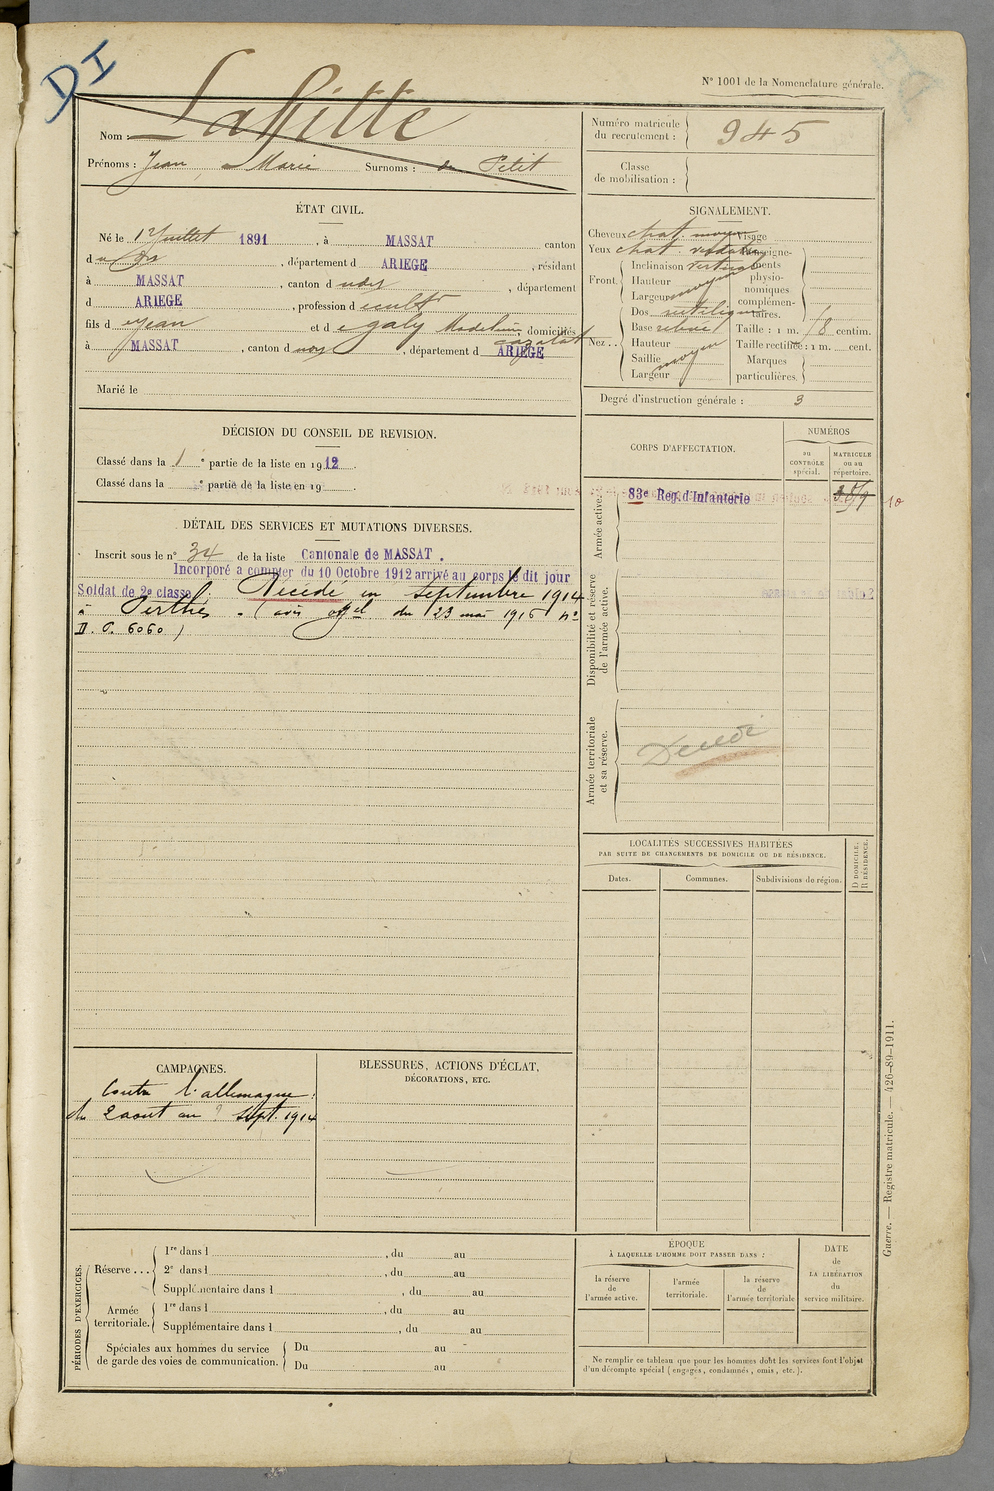 DI
N° 1001 de la Nomenclature générale.
Nom : Laffitte
Prénoms : Jean Marie Surnoms : Petit
Numéro matricule du recrutement : 945
Classe de mobilisation :
ÉTAT CIVIL.
Né le Juillet 1891, à MASSAT canton
d dudit, département d ARIEGE, résidant
à MASSAT, canton d udit, département
d ARIEGE, profession d cultr
fils d e Jean et d e galy Madeleine, domiciliés
à MASSAT, canton d, département d ARIEGE
Marié le
SIGNALEMENT.
Cheveux chat. moyen Visage
Yeux chat. verdatre
Renseignements physionomiques complémentaires.
Front. Inclinaison vertical
Hauteur
Largeur moyen
Nez.. Dos rectiligne
Base relevé
Hauteur
Saillie moyen
Largeur
Taille : 1 m. centim.
Taille rectifiée : 1 m. cent.
Marques particulières.
Degré d'instruction générale : 3
DÉCISION DU CONSEIL DE REVISION.
Classé dans la 1e partie de la liste en 1912.
Classé dans la e partie de la liste en 19 .
DÉTAIL DES SERVICES ET MUTATIONS DIVERSES.
Inscrit sous le n° 34 de la liste Cantonale de MASSAT.
Incorporé a compter du 10 Octobre 1912 arrivé au corps le dit jour
Soldat de 2e classe. Décédé en septembre 1914
à Perthes. (avis offel du 23 mai 1916 no
D. O. 6060)
CORPS D'AFFECTATION.
NUMÉROS
au CONTRÔLE spécial.
MATRICULE ou au répertoire.
Armée active.
83e Reg. d'Infanterie
10
Disponibilité et réserve de l'armée active.
Armée territoriale et sa réserve.
Décédé
LOCALITÉS SUCCESSIVES HABITÉES
PAR SUITE DE CHANGEMENTS DE DOMICILE OU DE RÉSIDENCE.
Dates.
Communes.
Subdivisions de région.
D DOMICILE, R RÉSIDENCE.
CAMPAGNES.
Contre l'allemagne :
du 2 aout au ? sept. 1914
BLESSURES, ACTIONS D'ÉCLAT,
DÉCORATIONS, ETC.
PÉRIODES D'EXERCICES.
Réserve ...
1re dans l , du au
2e dans l , du au
Supplémentaire dans l , du au
Armée territoriale.
1re dans l , du au
Supplémentaire dans l , du au
Spéciales aux hommes du service de garde des voies de communication.
Du au
Du au
ÉPOQUE
À LAQUELLE L'HOMME DOIT PASSER DANS :
la réserve de l'armée active.
l'armée territoriale.
la réserve de l'armée territoriale
DATE de LA LIBÉRATION du service militaire.
Ne remplir ce tableau que pour les hommes dont les services font l'objet
d'un décompte spécial (engagés, condamnés, omis, etc.).
Guerre. — Registre matricule. — 426-89-1911.